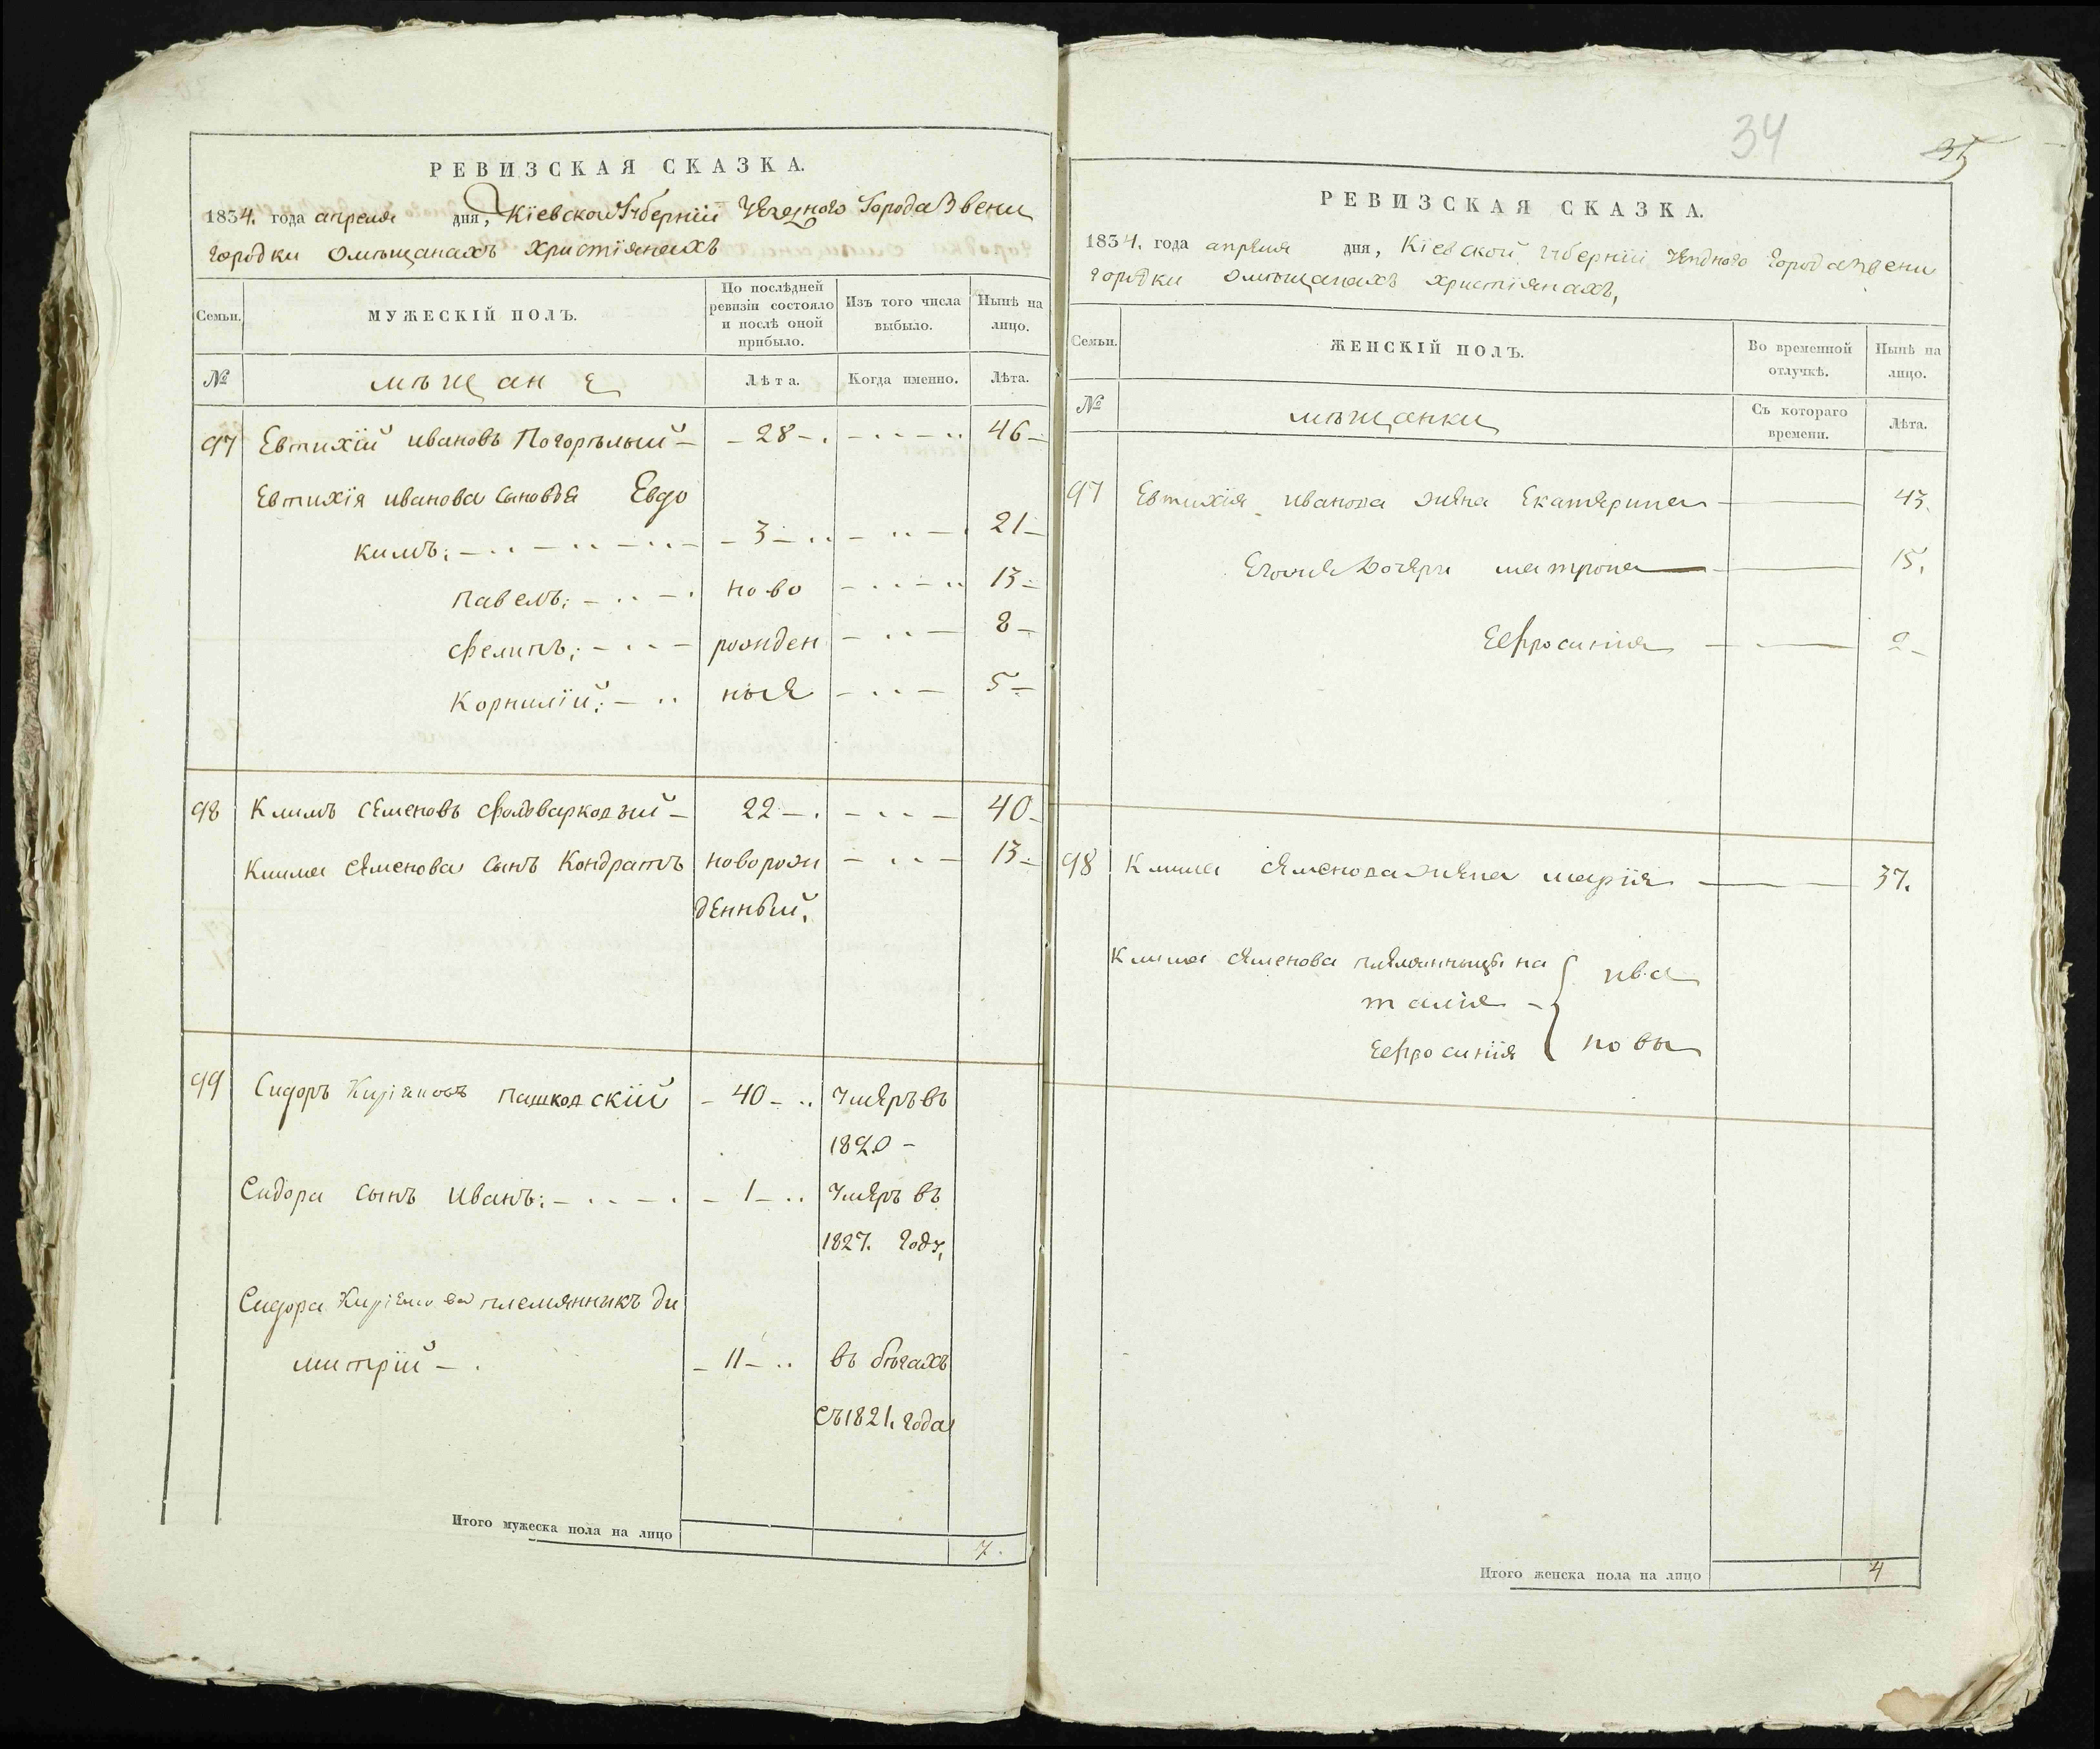 РЕВИЗСКАЯ СКАЗКА.
1834. года апреля дня, Кіевской Губерніи Уезного Города Звени
городки омѣщанахъ христіянахъ
Семьи.
МУЖЕСКІЙ ПОЛЪ.
По послѣдней ревизіи состояло и послѣ оной прибыло.
Изъ того числа выбыло.
Нынѣ на лицо.
№
мѣщане
Лѣта.
Когда именно.
Лѣта.
97 Евтихій ивановъ Погорѣлый – – 28 – . 46 –
Евтихія иванова сыновья Евдо
кимъ: – 3 – 21 –
павелъ: ново 13 –
филипъ: рожден 8 –
Корнилій: ныя 5 –
98 Климъ семеновъ фольварковый – 22 – . 40 –
Клима семенова сынъ Кондратъ новорож 13 –
денный.
99 Сидоръ пашковскій – 40 – .. умеръ въ
1820 –
Сидора сынъ иванъ: – 1 – .. умеръ въ
1827. году,
Сидора племянникъ ди
митрій – . – 11 – .. въ бѣгахъ
съ 1821. года
Итого мужеска пола на лицо 7.
34
35
РЕВИЗСКАЯ СКАЗКА.
1834. года апреля дня, Кіевской губерніи уездного города звени
городки омѣщанахъ христіянахъ,
Семьи.
ЖЕНСКІЙ ПОЛЪ.
Во временной отлучкѣ.
Нынѣ на лицо.
№
мѣщанки
Съ котораго времени.
Лѣта.
97 Евтихія иванова жена Екатерина 43.
Егоже дочери матрона 15.
Ефросинія 2 –
98 Клима семенова жена марія 37.
Клима семенова племянницы на
талія – { ива
Ефросинія новы
Итого женска пола на лицо 4